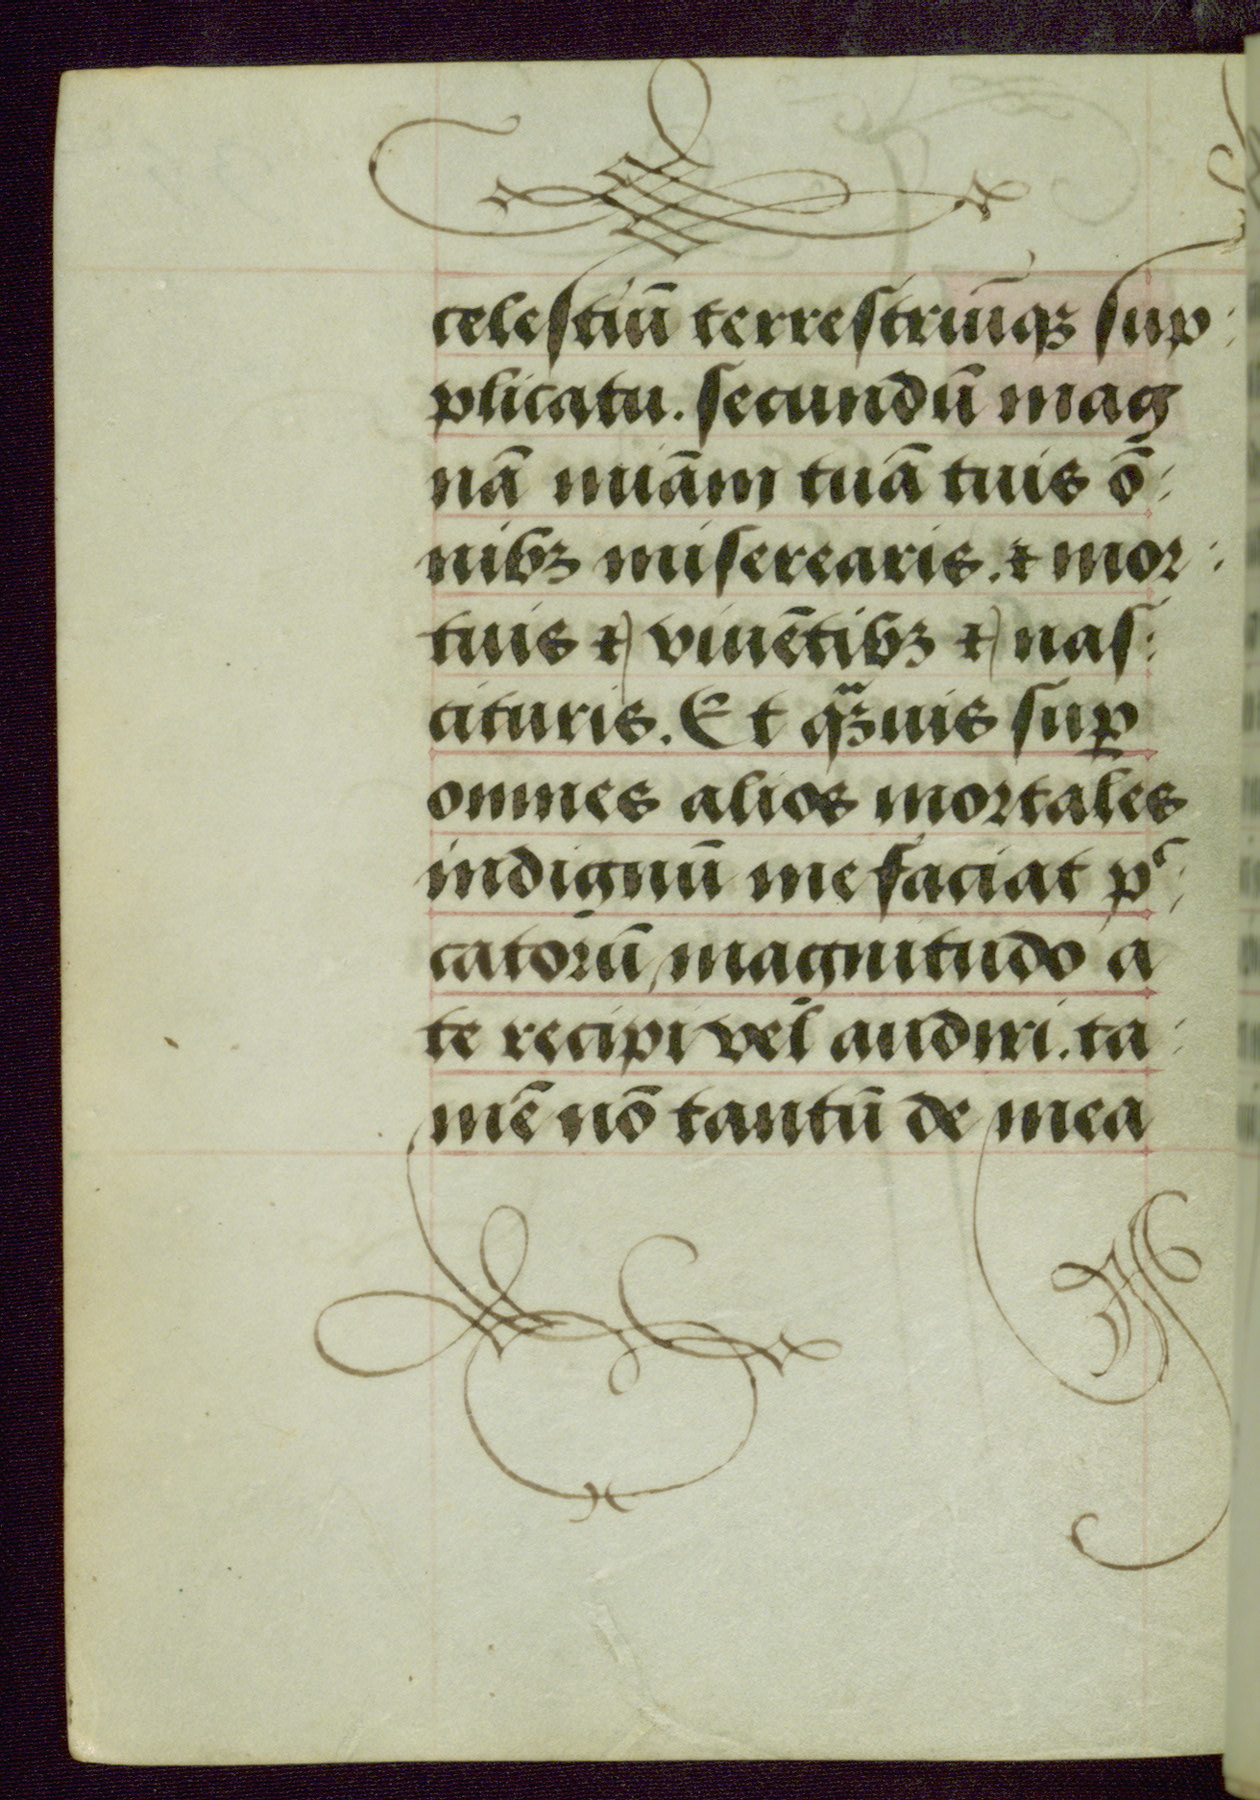 celestiū terrestriūqꝫ sup
plicatu. secundū mag
nā miām tuā tuis ō
nibꝫ miserearis. ⁊ mor
tuis ⁊ viuētibꝫ ⁊ nas
cituris. Et qᷓꝫuis suꝑ
omnes alios mortales
indignū me faciat pᶜ
catorū magnitudo a
te recipi vel̄ audiri. ta
mē nō tantū de mea